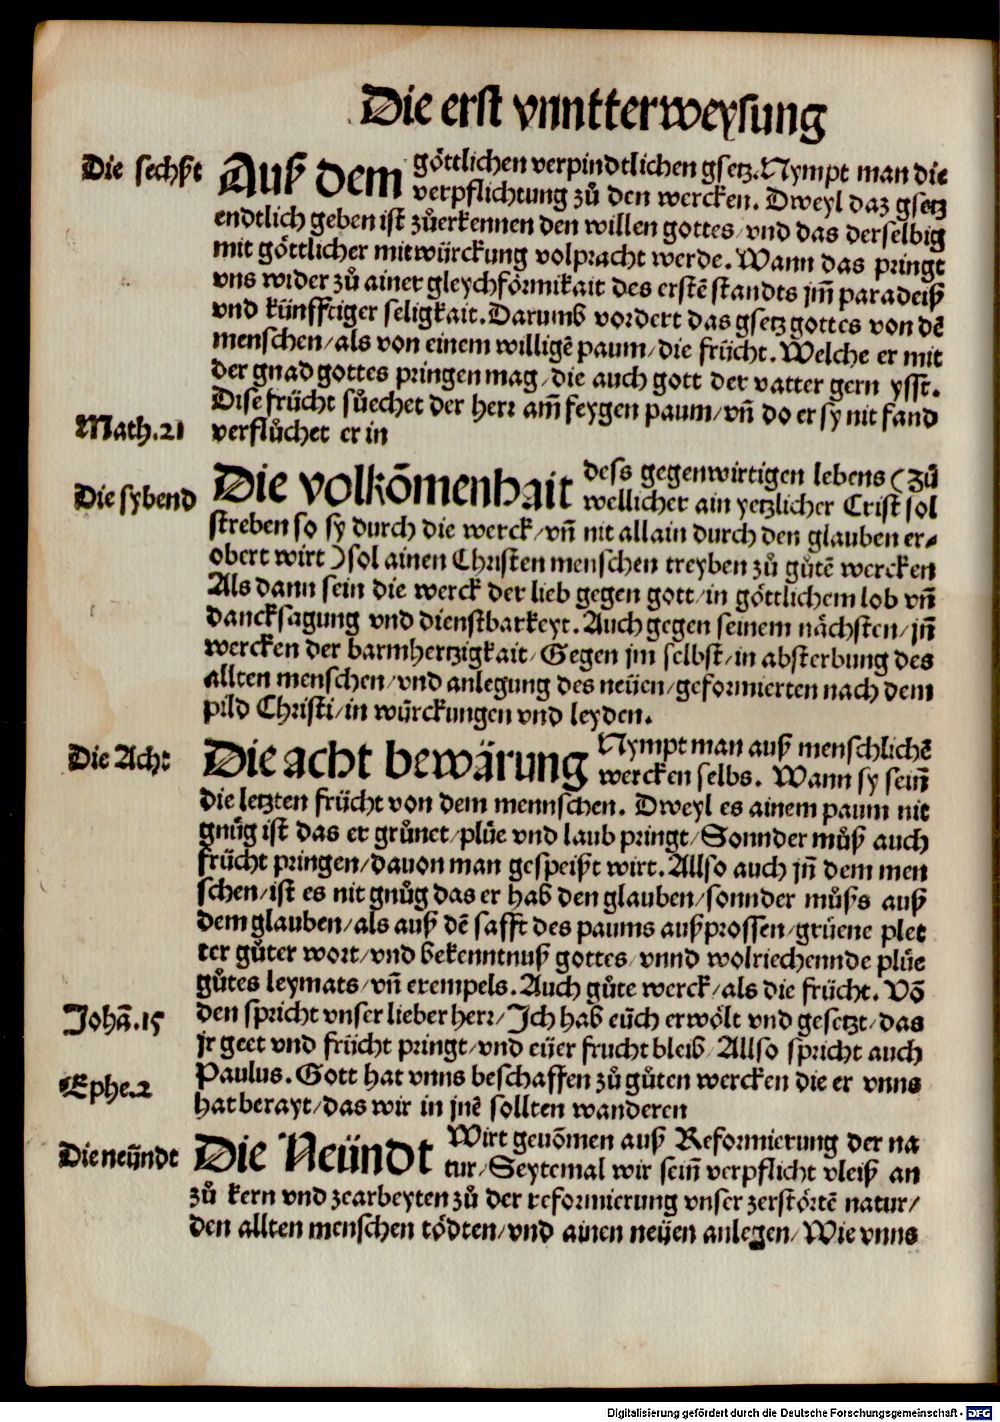 Die erst vnntterweysung
Die sechßt
Auß dem göttlichen verpindtlichen gsetz. Nympt man die
verpflichtung zů den wercken. Dweyl daz gsetz
endtlich geben ist zůerkennen den willen gottes/ vnd das derselbig
mit göttlicher mitwürckung volpracht werde. Wann das pringt
vns wider zů ainer gleychförmikait des erstē standts jm̄ paradeiß
vnd künfftiger seligkait. Darumb vordert das gsetz gottes von dē
menschen/ als von einem willigē paum/ die frücht. Welche er mit
der gnad gottes pringen mag/ die auch gott der vatter gern ysst.
Dise frücht sůechet der herr am̄ feygen paum/ vn̄ do er sy nit fand
Math.21
verflůchet er in
Die sybend
Die volkōmenhait dess gegenwirtigen lebens (zů
wellicher ain yetzlicher Crist sol
streben so sy durch die werck/ vn̄ nit allain durch den glauben er-
obert wirt) sol ainen Christen menschen treyben zů gůtē wercken
Als dann sein die werck der lieb gegen gott/ in göttlichem lob vn̄
dancksagung vnd dienstbarkeyt. Auch gegen seinem nächsten/ jn̄
wercken der barmhertzigkait/ Gegen jm selbst/ in absterbung des
allten menschen/ vnd anlegung des neüen/ geformierten nach dem
pild Christi/ in würckungen vnd leyden.
Die Acht
Die acht bewärung Nympt man auß menschlichē
wercken selbs. Wann sy sein̄
die letzten frücht von dem mennschen. Dweyl es ainem paum nit
gnůg ist das er grůnet/ plüe vnd laub pringt/ Sonnder můß auch
frücht pringen/ dauon man gespeißt wirt. Allso auch jn̄ dem men
schen/ ist es nit gnůg das er hab den glauben/ sonnder můßs auß
dem glauben/ als auß dē safft des paums außprossen/ grüene plet
ter gůter wort/ vnd bekenntnuß gottes/ vnnd wolriechennde plüe
gůtes leymats/ vn̄ exempels. Auch gůte werck/ als die frücht. Vō
Johā.15
den spricht vnser lieber herr/ Ich hab eüch erwölt vnd gesetzt/ das
jr geet vnd frücht pringt/ vnd eüer frucht bleib/ Allso spricht auch
Ephe.2
Paulus. Gott hat vnns beschaffen zů gůten wercken die er vnns
hat berayt/ das wir in jnē sollten wanderen
Die neündt
Die Neündt Wirt genōmen auß Reformierung der na
tur/ Seytemal wir sein̄ verpflicht vleiß an
zů kern vnd zearbeyten zů der reformierung vnser zerstörtē natur/
den allten menschen tödten/ vnd ainen neüen anlegen/ Wie vnns
Digitalisierung gefördert durch die Deutsche Forschungsgemeinschaft - DFG